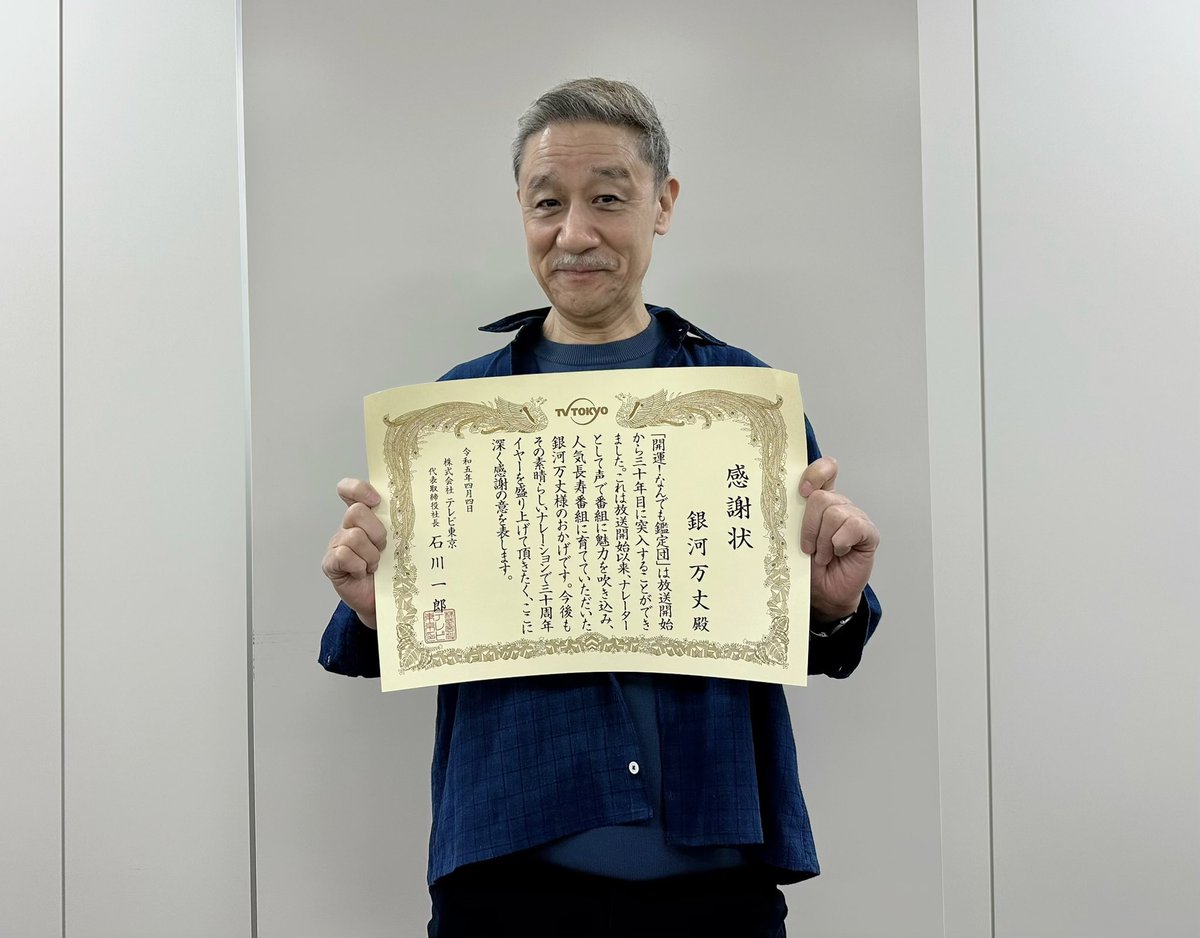 TV TOKYO
感謝状
銀河万丈殿
「開運！なんでも鑑定団」は放送開始
から三十年目に突入することができ
ました。これは放送開始以来、ナレーター
として声で番組に魅力を吹き込み、
人気長寿番組に育てていただいた
銀河万丈様のおかげです。今後も
その素晴らしいナレーションで三十周年
イヤーを盛り上げて頂きたく、ここに
深く感謝の意を表します。
令和五年四月四日
株式会社 テレビ東京
代表取締役社長 石川一郎